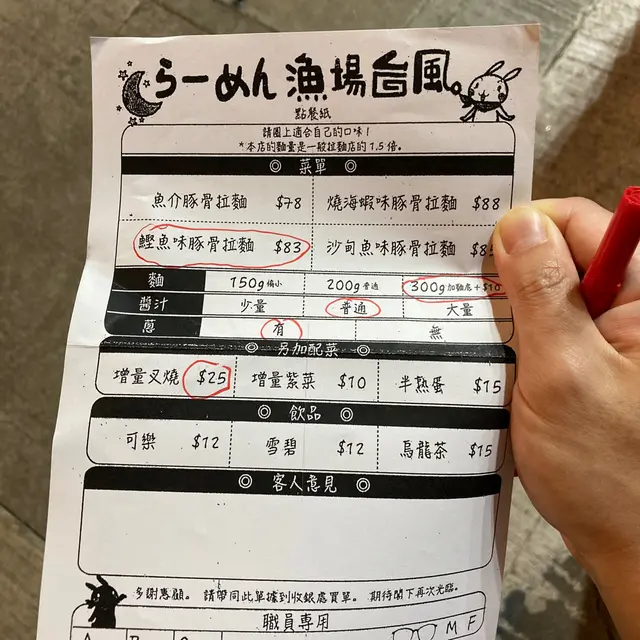 らーめん 漁場台風
點餐紙
請圈上適合自己的口味！
*本店的麵量是一般拉麵店的1.5倍。
◎ 菜單 ◎
魚介豚骨拉麵 $78 燒海蝦味豚骨拉麵 $88
鰹魚味豚骨拉麵 $83 沙甸魚味豚骨拉麵
麵 150g 偏小 200g 普通 300g 加麵底+$10
醬汁 少量 普通 大量
蔥 有 無
◎ 另加配菜 ◎
增量叉燒 $25 增量紫菜 $10 半熟蛋 $15
◎ 飲品 ◎
可樂 $12 雪碧 $12 烏龍茶 $15
◎ 客人意見 ◎
多謝惠顧。 請帶同此單據到收銀處買單。 期待閣下再次光臨。
職員專用
M F